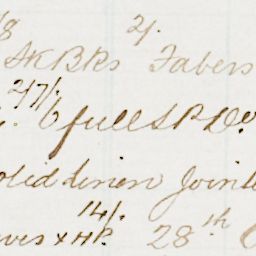 /8 2/.
SK BKs Fabers
247/.
6 full S P Do.
linen Joint
14/.
ves x HP. 28th